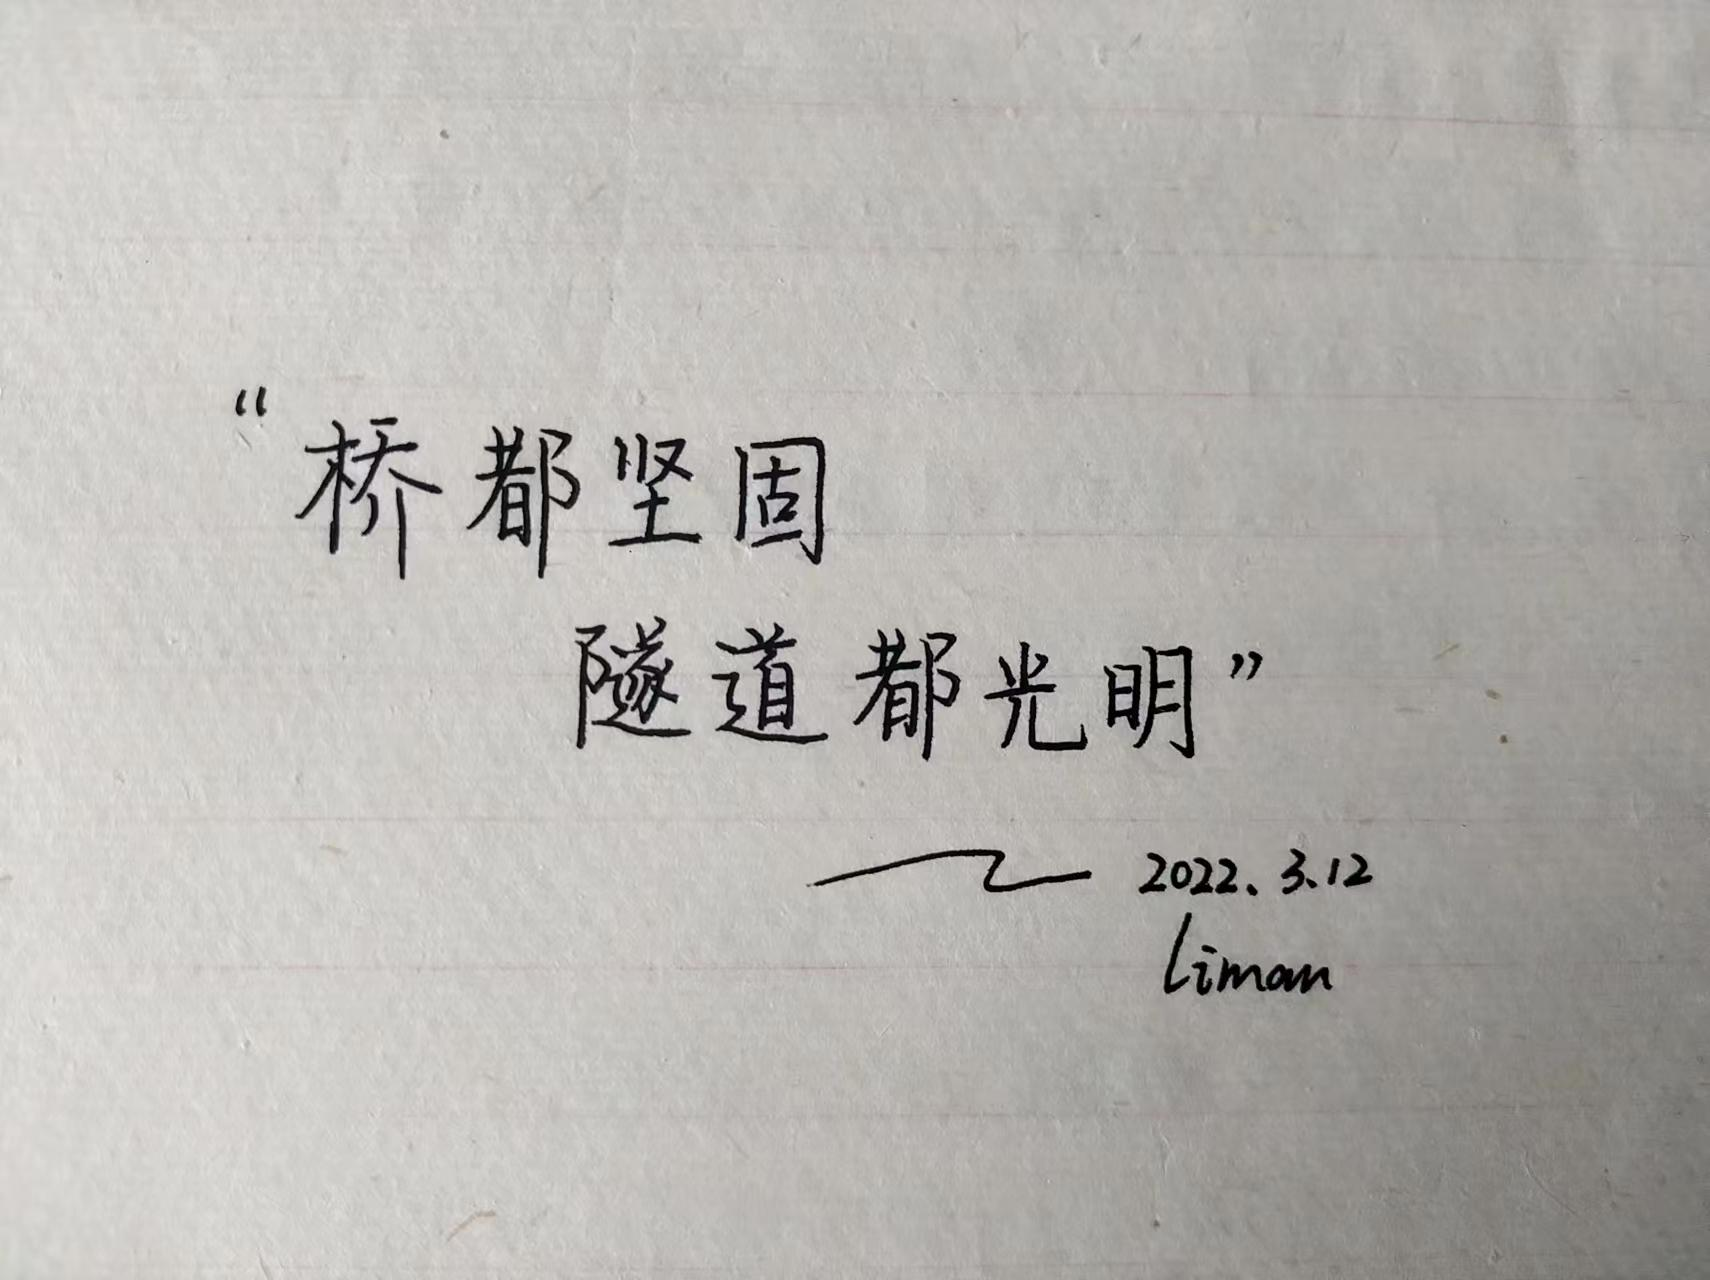 “桥都坚固
隧道都光明”
2022.3.12
Liman